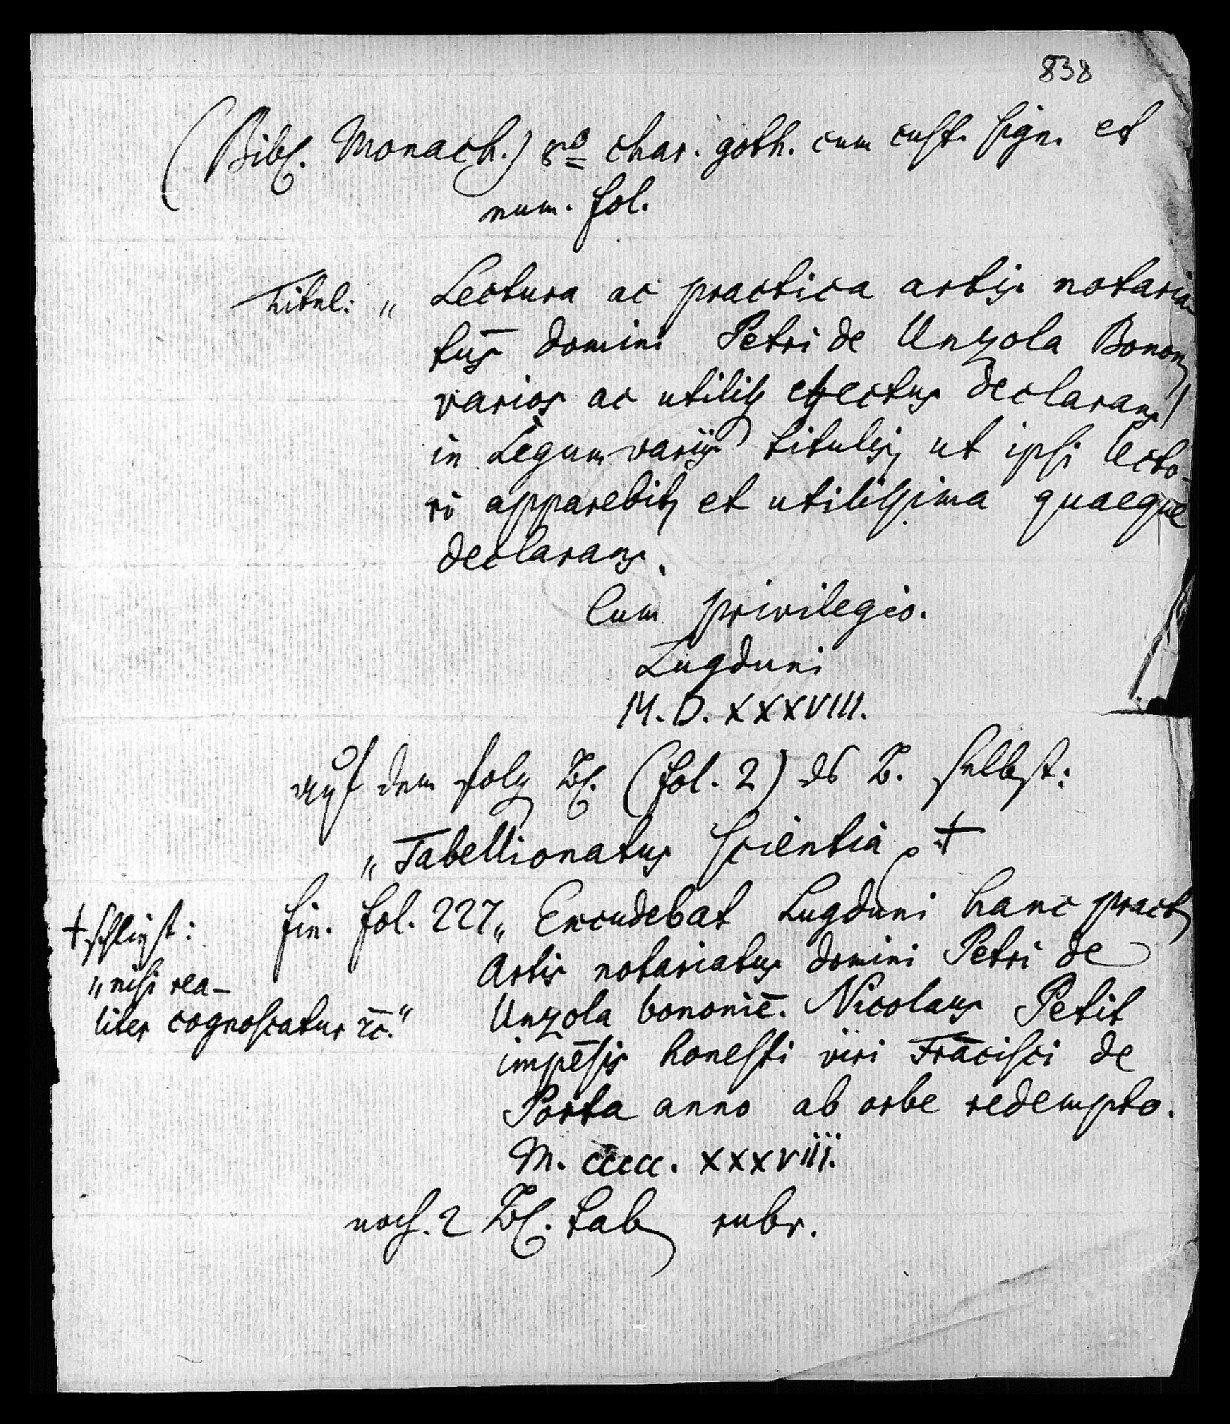 838
(Bibl. Monach.) 8vo char. goth. cum cust. sign. et
num. fol.
Titul: „ Lectura ac practica artis notaria
tus domini Petri de Unzola Bonon
varios ac utiles effectus declarans
in Legum variis titulis, ut ipsi lecto-
ri apparebit, et utilissima quaeque
declarans.
Cum privilegio.
Lugduni
M.D.XXXVIII.
auf dem folg Bl. (fol. 2) ds B. selbst:
„Tabellionatus scientia . +
fin. fol. 227 „ Excudebat Lugduni hanc pract
Artis notariatus domini Petri de
Unzola bononiē. Nicolaus Petit
impēsis honesti viri Frācisci de
Porta anno ab orbe redempto.
M. ccccc. xxxviii.
noch. 2 Bl. tab rubr.
+ schliest:
„nisi rea-
liter cognoscatur ⁊c̄."